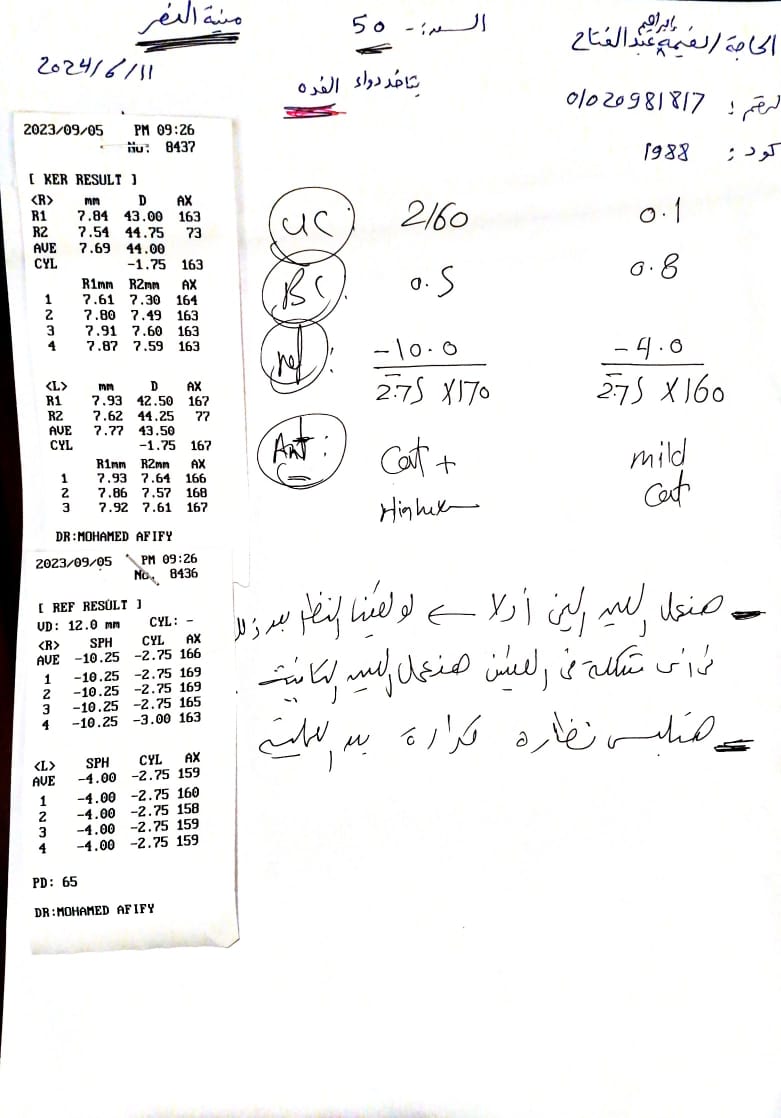 منية النصر
السن:- 50
إبراهيم
الحاجة/ نعيمة عبدالفتاح
2024/6/11
بتاخد دواء الغده
لرقم: 01020981817
كود: 1988
2023/09/05 PM 09:26
No: 8437
[ KER RESULT ]
<R> mm D AX
R1 7.84 43.00 163
R2 7.54 44.75 73
AVE 7.69 44.00
CYL -1.75 163
R1mm R2mm AX
1 7.61 7.30 164
2 7.80 7.49 163
3 7.91 7.60 163
4 7.87 7.59 163
<L> mm D AX
R1 7.93 42.50 167
R2 7.62 44.25 77
AVE 7.77 43.50
CYL -1.75 167
R1mm R2mm AX
1 7.93 7.64 166
2 7.86 7.57 168
3 7.92 7.61 167
DR:MOHAMED AFIFY
2023/09/05 PM 09:26
No. 8436
[ REF RESULT ]
VD: 12.0 mm CYL: -
<R> SPH CYL AX
AVE -10.25 -2.75 166
1 -10.25 -2.75 169
2 -10.25 -2.75 169
3 -10.25 -2.75 165
4 -10.25 -3.00 163
<L> SPH CYL AX
AVE -4.00 -2.75 159
1 -4.00 -2.75 160
2 -4.00 -2.75 158
3 -4.00 -2.75 159
4 -4.00 -2.75 159
PD: 65
DR:MOHAMED AFIFY
UC: 2/60 0.1
BC: 0.5 0.8
ref: -10.0 -4.0
-2.75 X170 -2.75 X160
Ant: Cat + mild
Higher cat
- هنعمل اليمين أولا ← لو لقينا النظر بعد
مشكلة في هنعمل العين التانية
- هتلبس نظاره قراءة بعد العملية